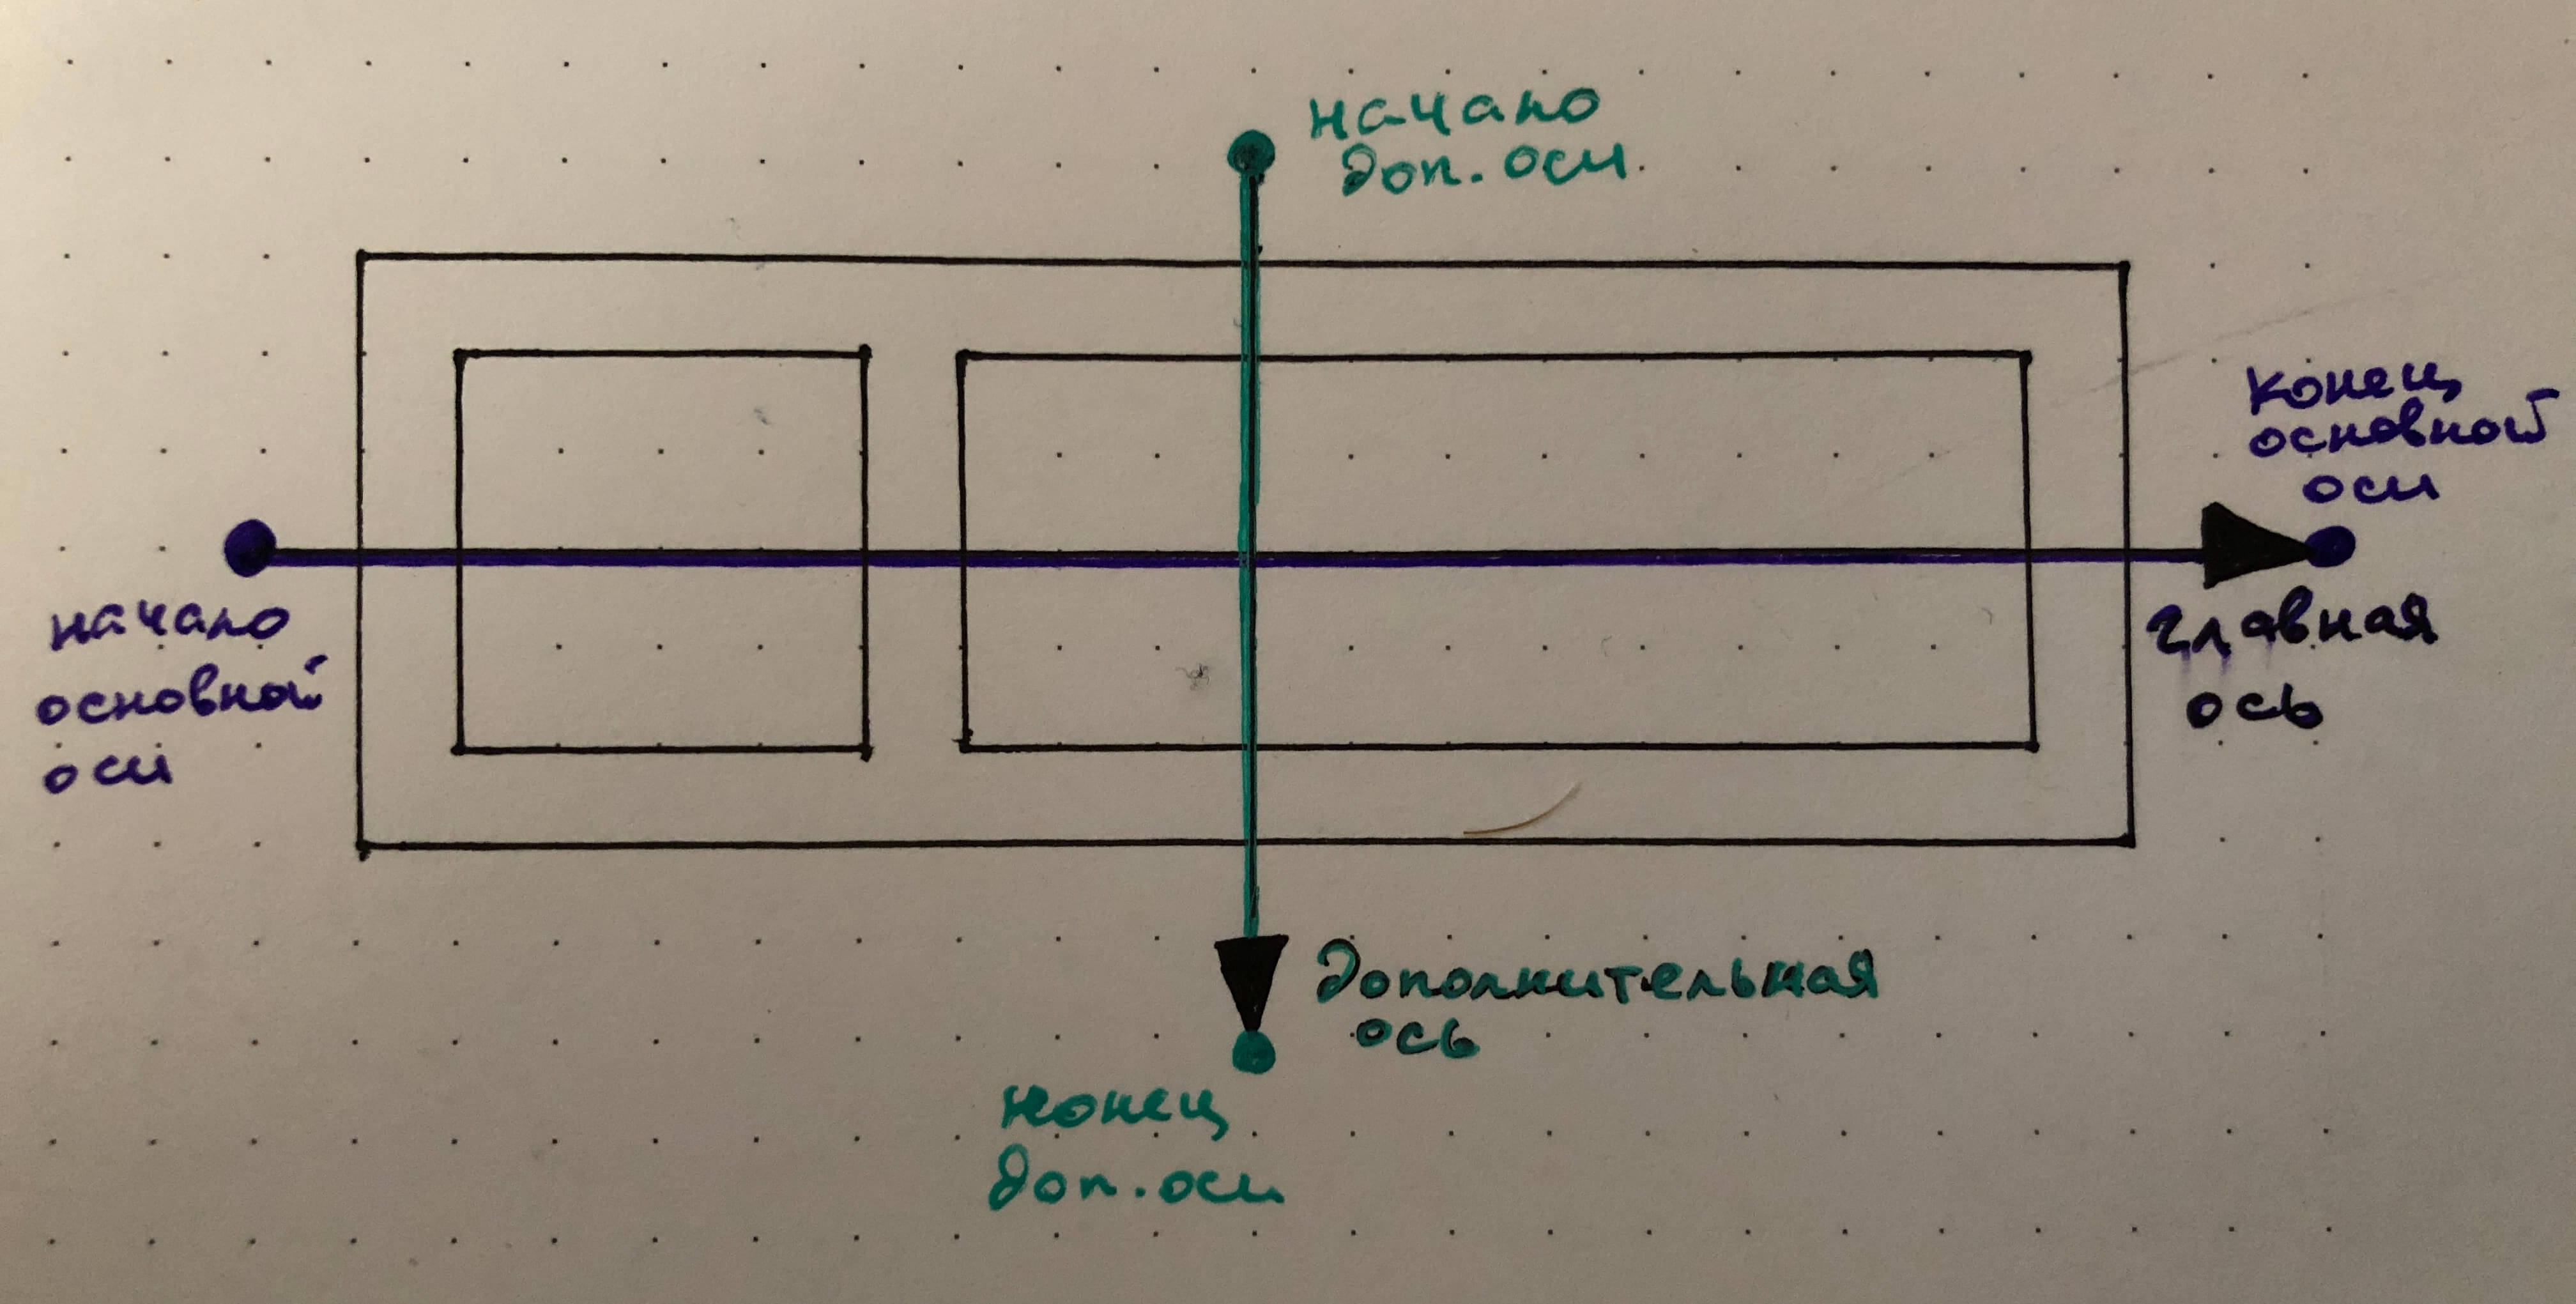 начало
доп. оси
конец
основной
оси
начало
основной
оси
главная
ось
дополнительная
ось
конец
доп. оси